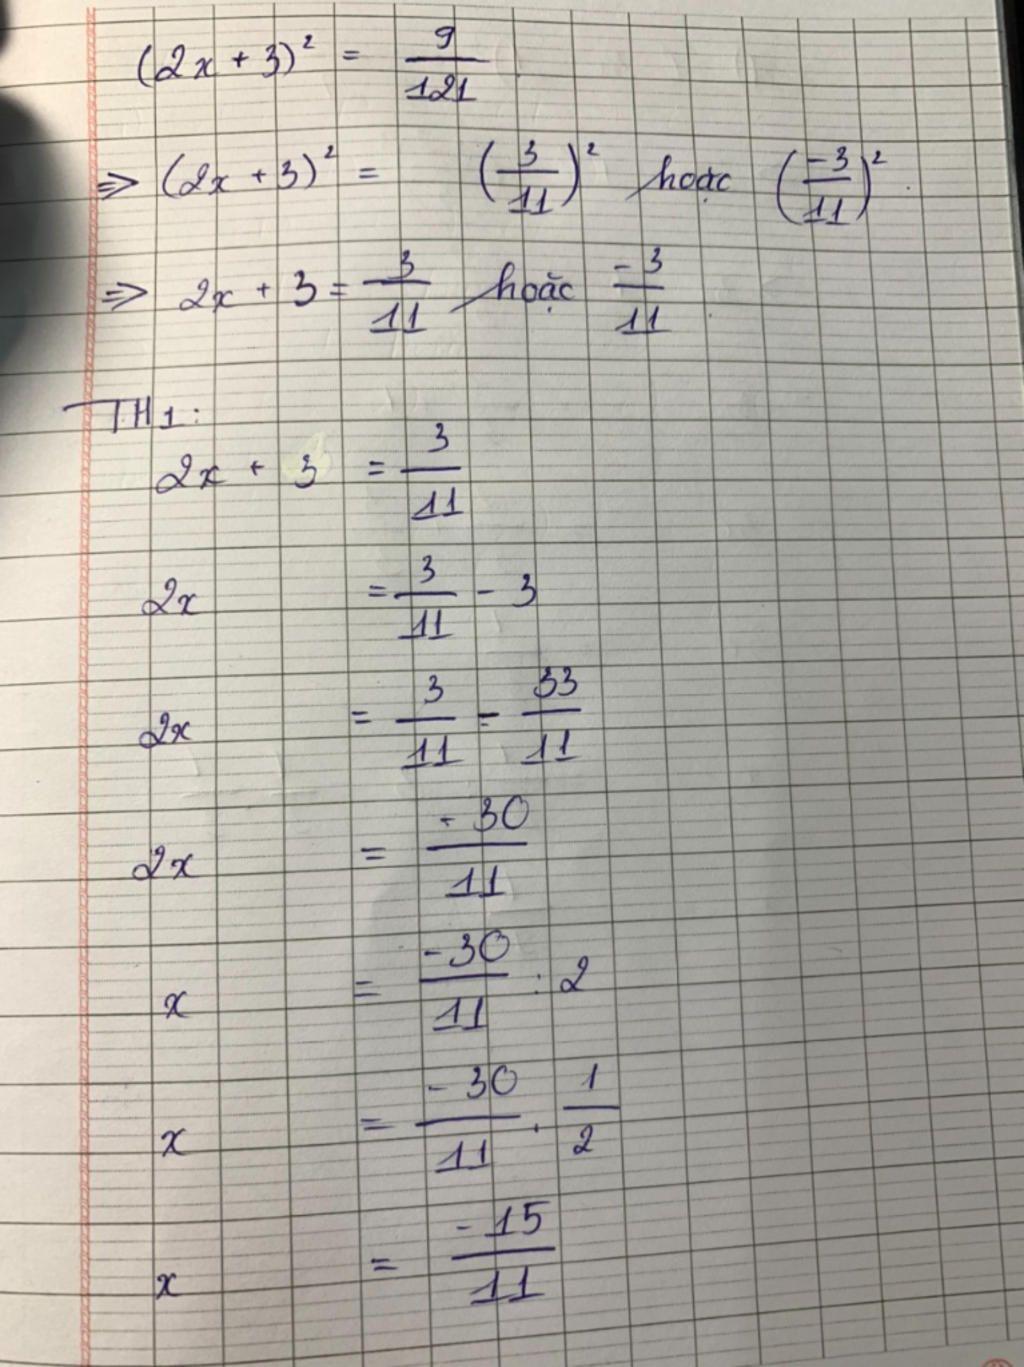 (2x + 3)² = 9/121
=> (2x + 3)² = (3/11)² hoặc (-3/11)².
=> 2x + 3 = 3/11 hoặc -3/11.
TH1:
2x + 3 = 3/11
2x = 3/11 - 3
2x = 3/11 - 33/11
2x = -30/11
x = -30/11 : 2
x = -30/11 . 1/2
x = -15/11